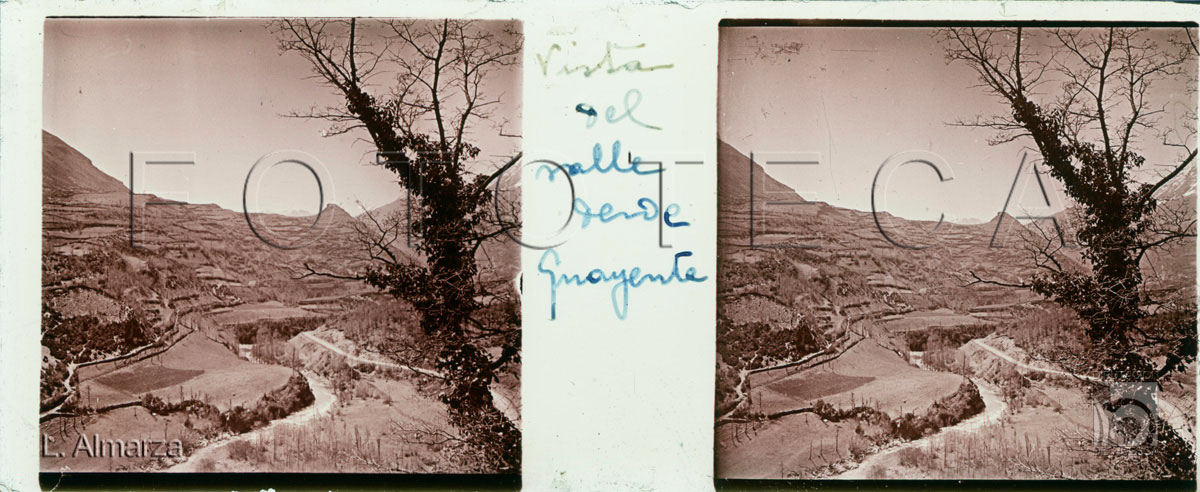 Vista
del
valle
desde
Guayente
FOTOTECA
L. Almarza